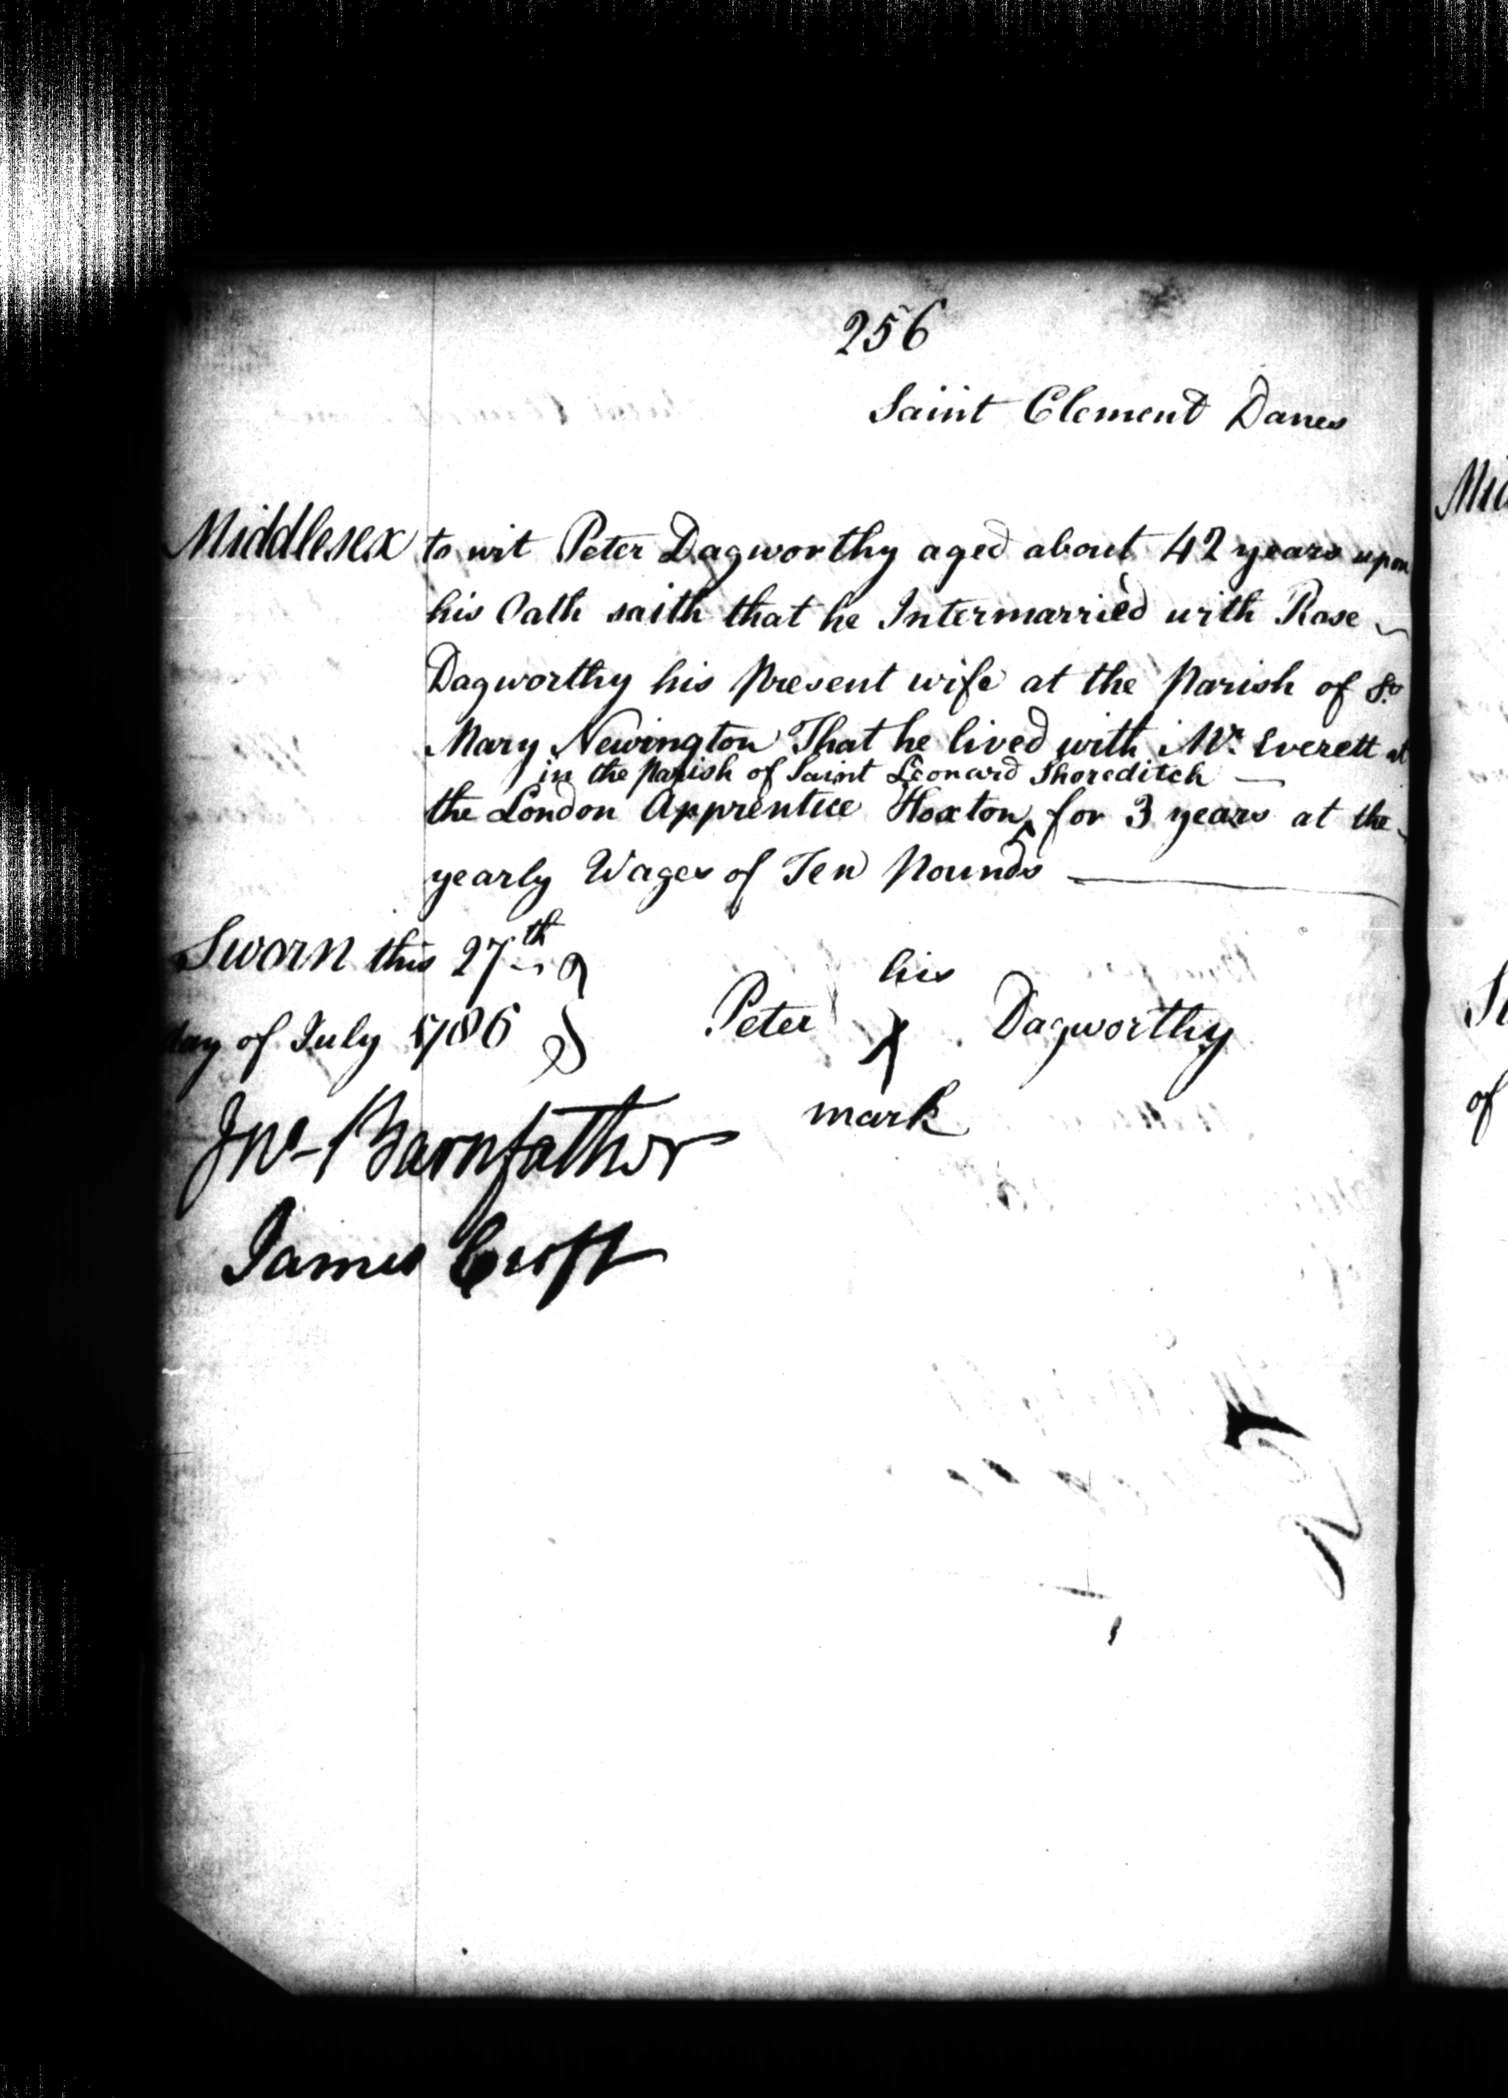 256
Saint Clement Danes
Middlesex to wit Peter Dagworthy aged about 42 years upon
his Oath saith that he Intermarried with Rose
Dagworthy his present wife at the Parish of St
Mary Newington That he lived with Mr Everett at
in the Parish of Saint Leonard Shoreditch
the London Apprentice Hoxton ^ for 3 years at the
yearly Wages of Ten Pounds
Sworn this 27th
day of July 1786
his
Peter X Dagworthy
mark
Jno Barnfather
James Croft